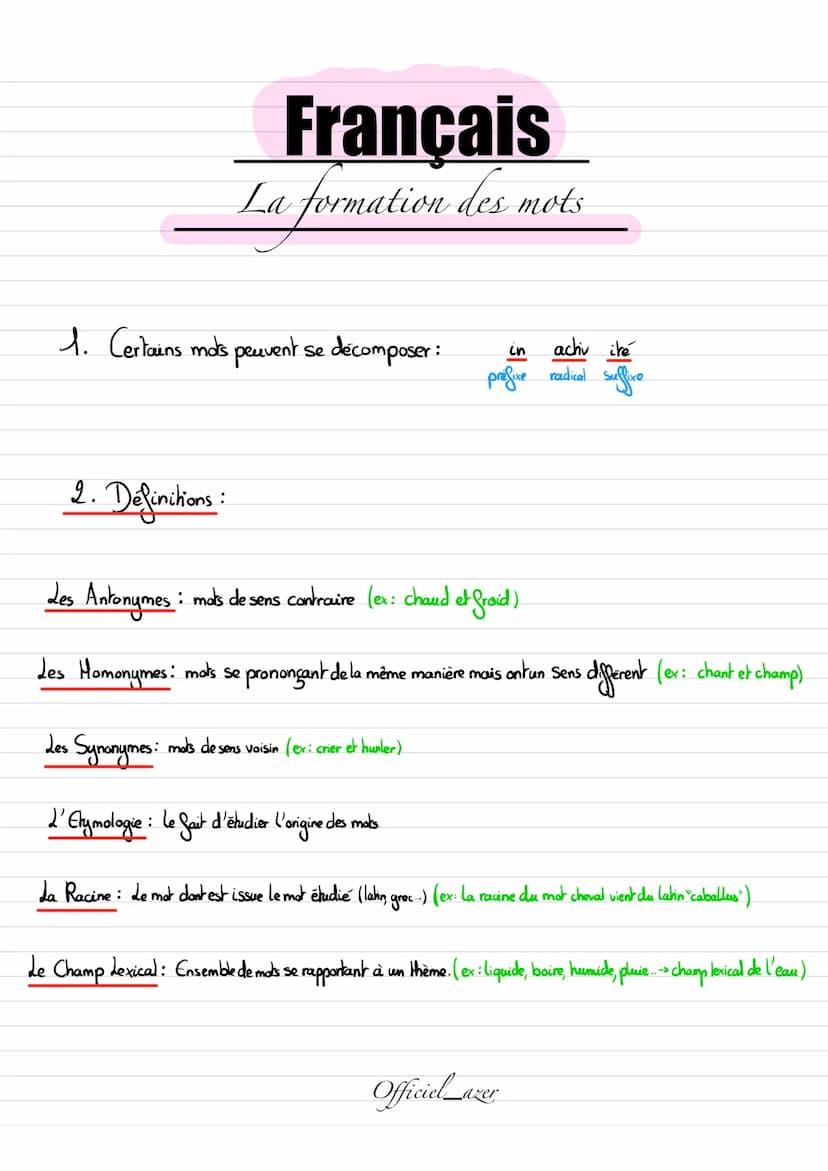 Français
La formation des mots
1. Certains mots peuvent se décomposer : in activ ité
préfixe radical suffixe
2. Définitions :
Les Antonymes : mots de sens contraire (ex : chaud et froid)
Les Homonymes : mots se prononçant de la même manière mais ont un sens différent (ex : chant et champ)
Les Synonymes : mots de sens voisin (ex : crier et hurler)
L'Etymologie : le fait d'étudier l'origine des mots
La Racine : Le mot dont est issue le mot étudié (latin, grec...) (ex : La racine du mot cheval vient du latin "caballus")
Le Champ Lexical : Ensemble de mots se rapportant à un thème. (ex : liquide, boire, humide, pluie...-> champ lexical de l'eau)
Officiel_azer